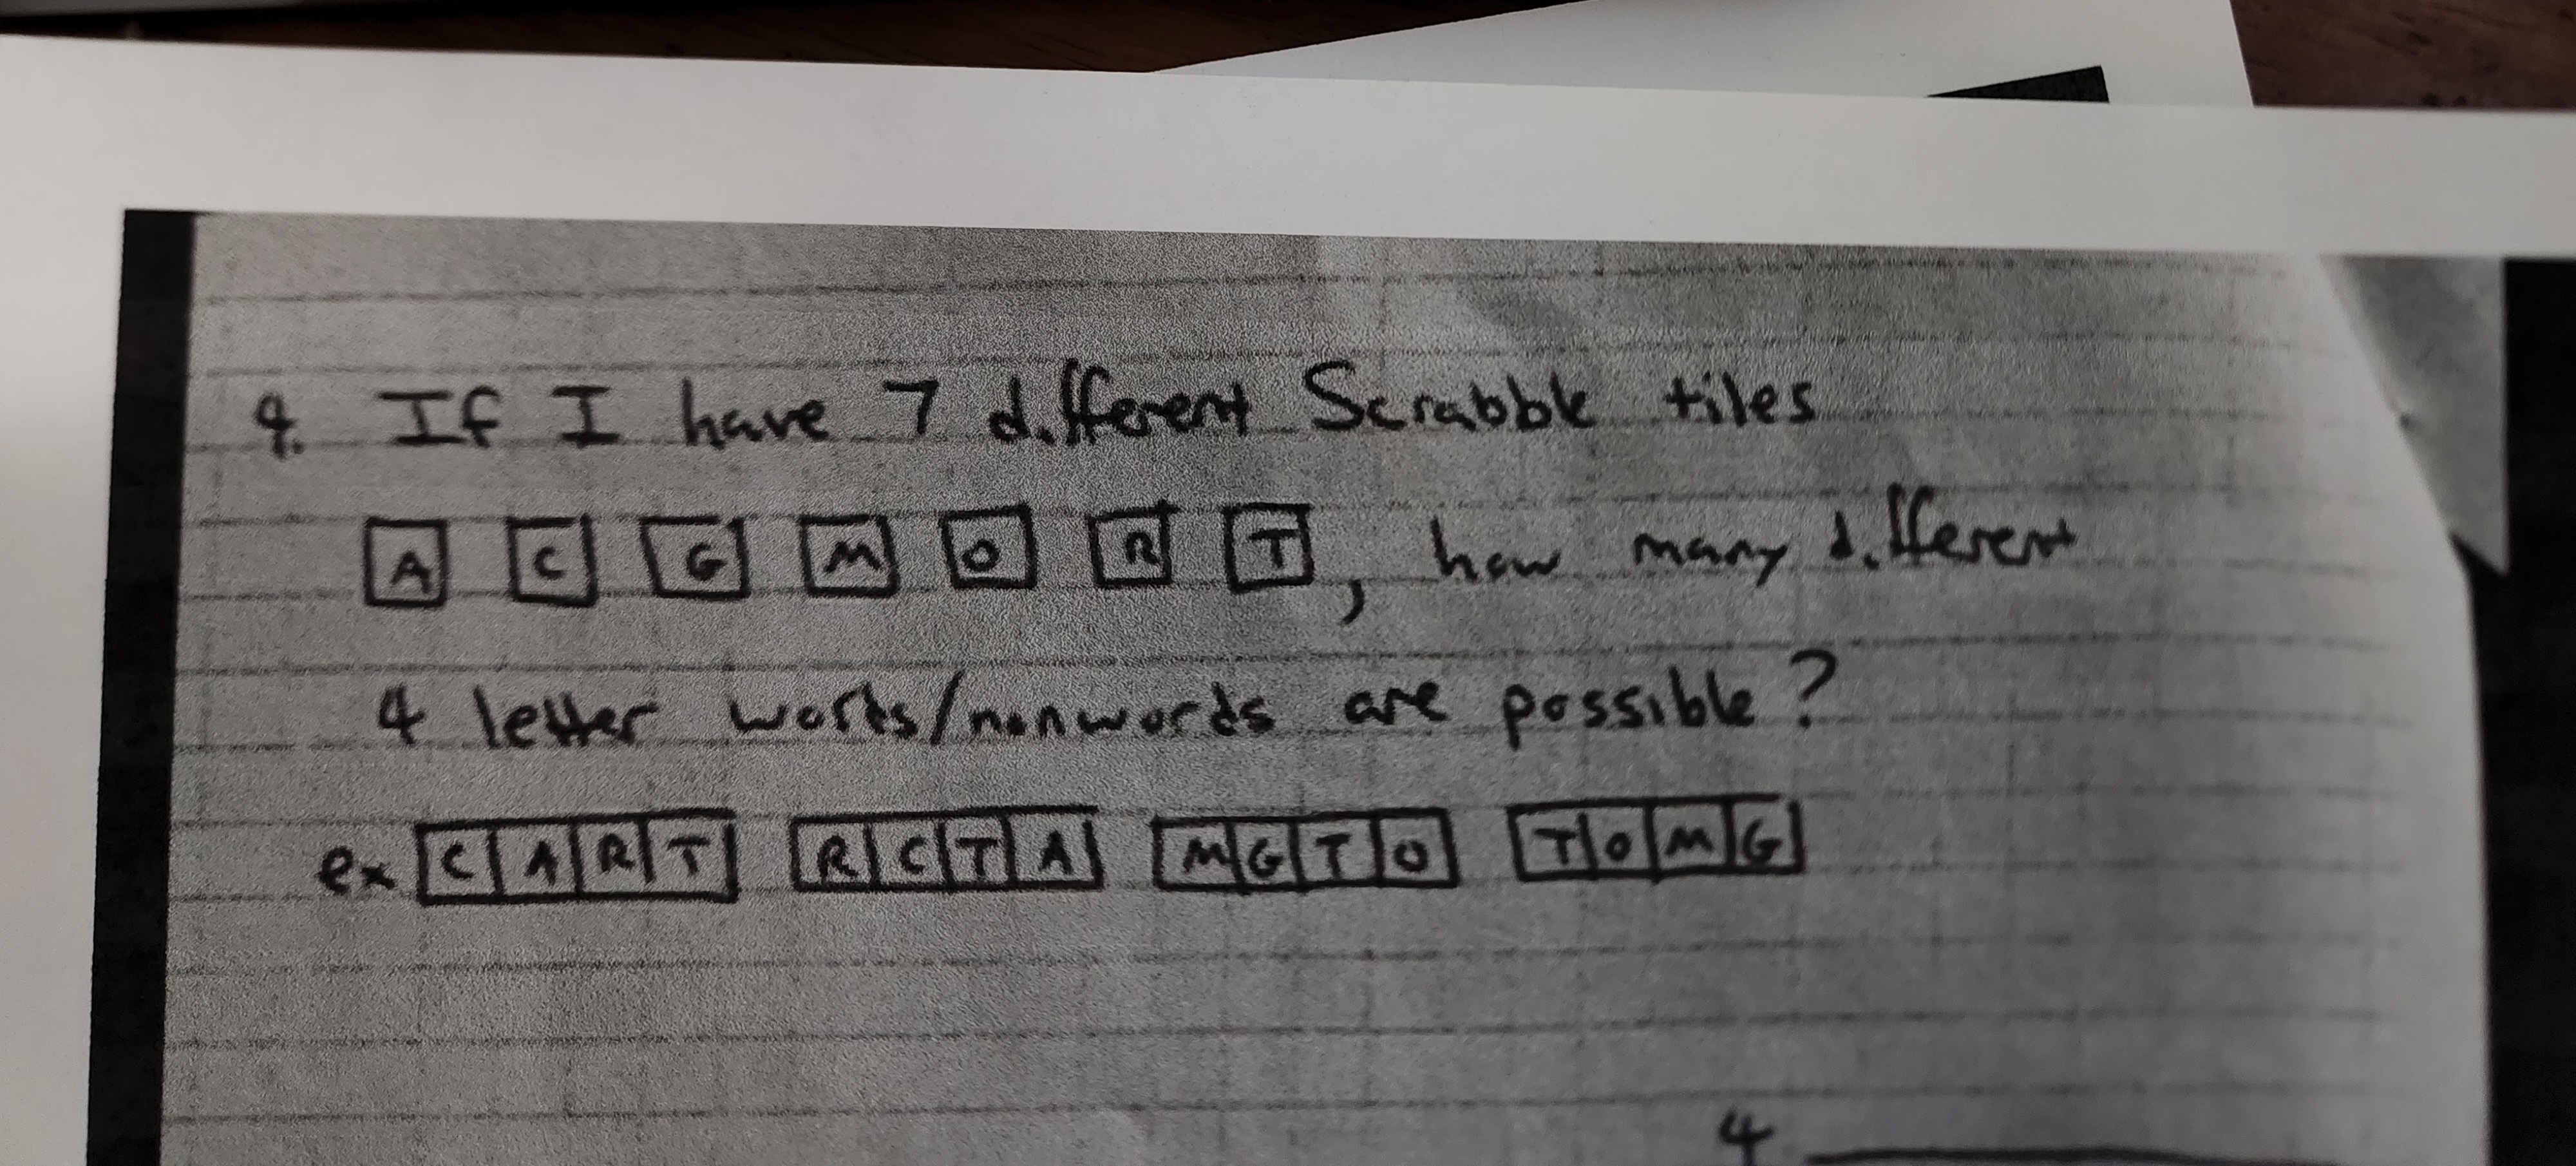 4. If I have 7 different Scrabble tiles
A C G M O R T, how many different
4 letter words/nonwords are possible?
ex CART RCTA MGTO TOMG
4